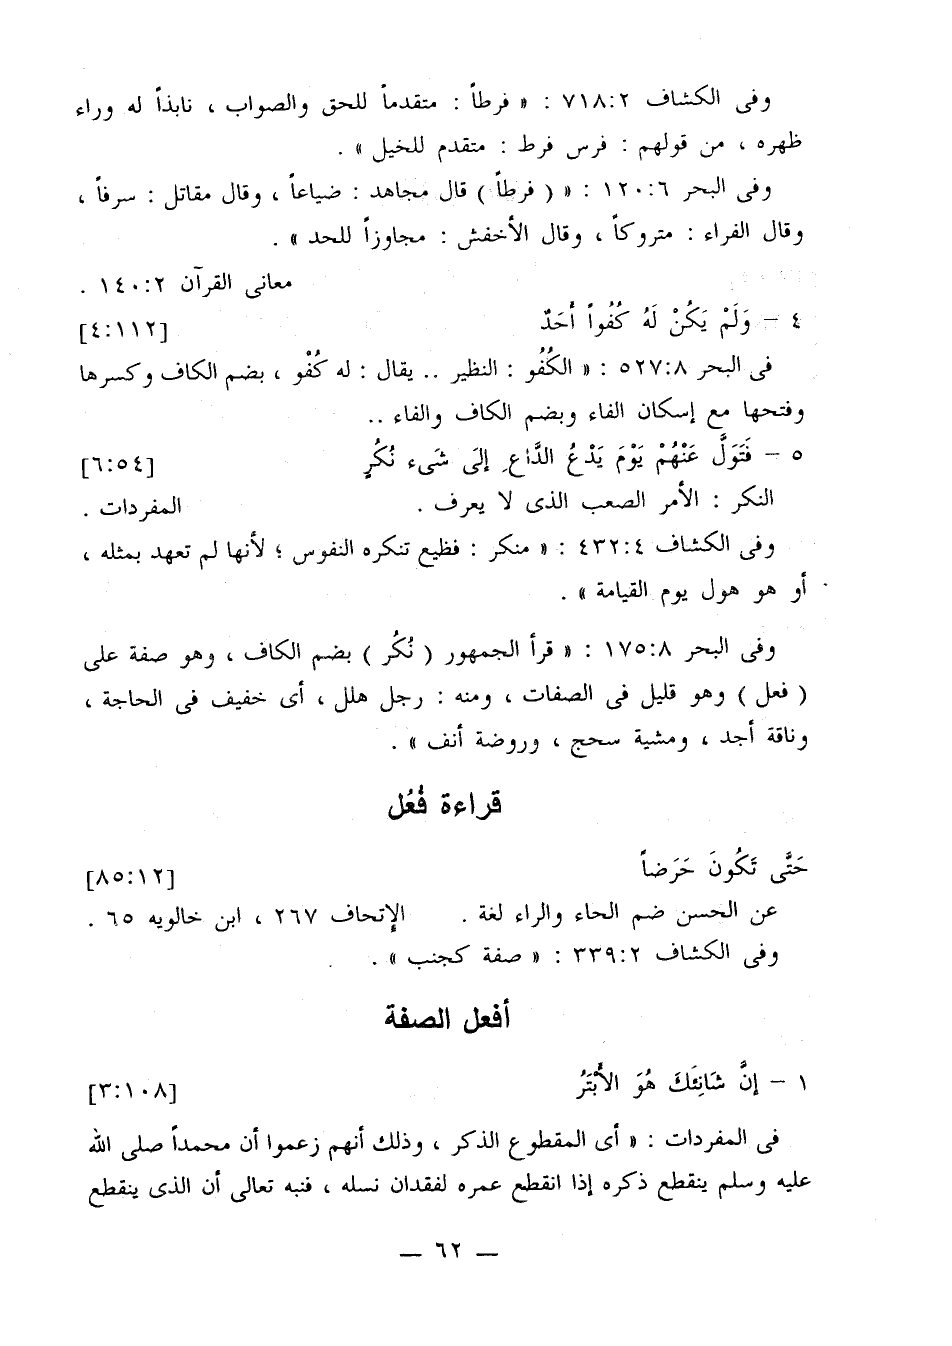 وفى الكشاف ٧١٨:٢ : « فرطاً : متقدماً للحق والصواب ، نابذاً له وراء
ظهره ، من قولهم : فرس فرط : متقدم للخيل » .
وفى البحر ١٢٠:٦ : « ( فرطاً ) قال مجاهد : ضياعاً ، وقال مقاتل : سرفاً ،
وقال الفراء : متروكاً ، وقال الأخفش : مجاوزاً للحد » .
معانى القرآن ١٤٠:٢ .
٤ – وَلَمْ يَكُنْ لَهُ كُفُواً أَحَدٌ [٤:١١٢]
فى البحر ٥٢٧:٨ : « الكُفُو : النظير .. يقال : له كُفْو ، بضم الكاف وكسرها
وفتحها مع إسكان الفاء وبضم الكاف والفاء ..
٥ – فَتَوَلَّ عَنْهُمْ يَوْمَ يَدْعُ الدَّاعِ إلَى شَىء نُكُرٍ [٦:٥٤]
النكر : الأمر الصعب الذى لا يعرف . المفردات .
وفى الكشاف ٤٣٢:٤ : « منكر : فظيع تنكره النفوس ؛ لأنها لم تعهد بمثله ،
أو هو هول يوم القيامة » .
وفى البحر ١٧٥:٨ : « قرأ الجمهور ( نُكُر ) بضم الكاف ، وهو صفة على
( فعل ) وهو قليل فى الصفات ، ومنه : رجل هلل ، أى خفيف فى الحاجة ،
وناقة أجد ، ومشية سحج ، وروضة أنف » .
قراءة فُعُل
حَتَّى تَكُونَ حَرَضاً [٨٥:١٢]
عن الحسن ضم الحاء والراء لغة . الإتحاف ٢٦٧ ، ابن خالويه ٦٥ .
وفى الكشاف ٣٣٩:٢ : « صفة كجنب » .
أفعل الصفة
١ – إنَّ شَانِئَكَ هُوَ الأَبْتَرُ [٣:١٠٨]
فى المفردات : « أى المقطوع الذكر ، وذلك أنهم زعموا أن محمداً صلى الله
عليه وسلم ينقطع ذكره إذا انقطع عمره لفقدان نسله ، فنبه تعالى أن الذى ينقطع
— ٦٢ —